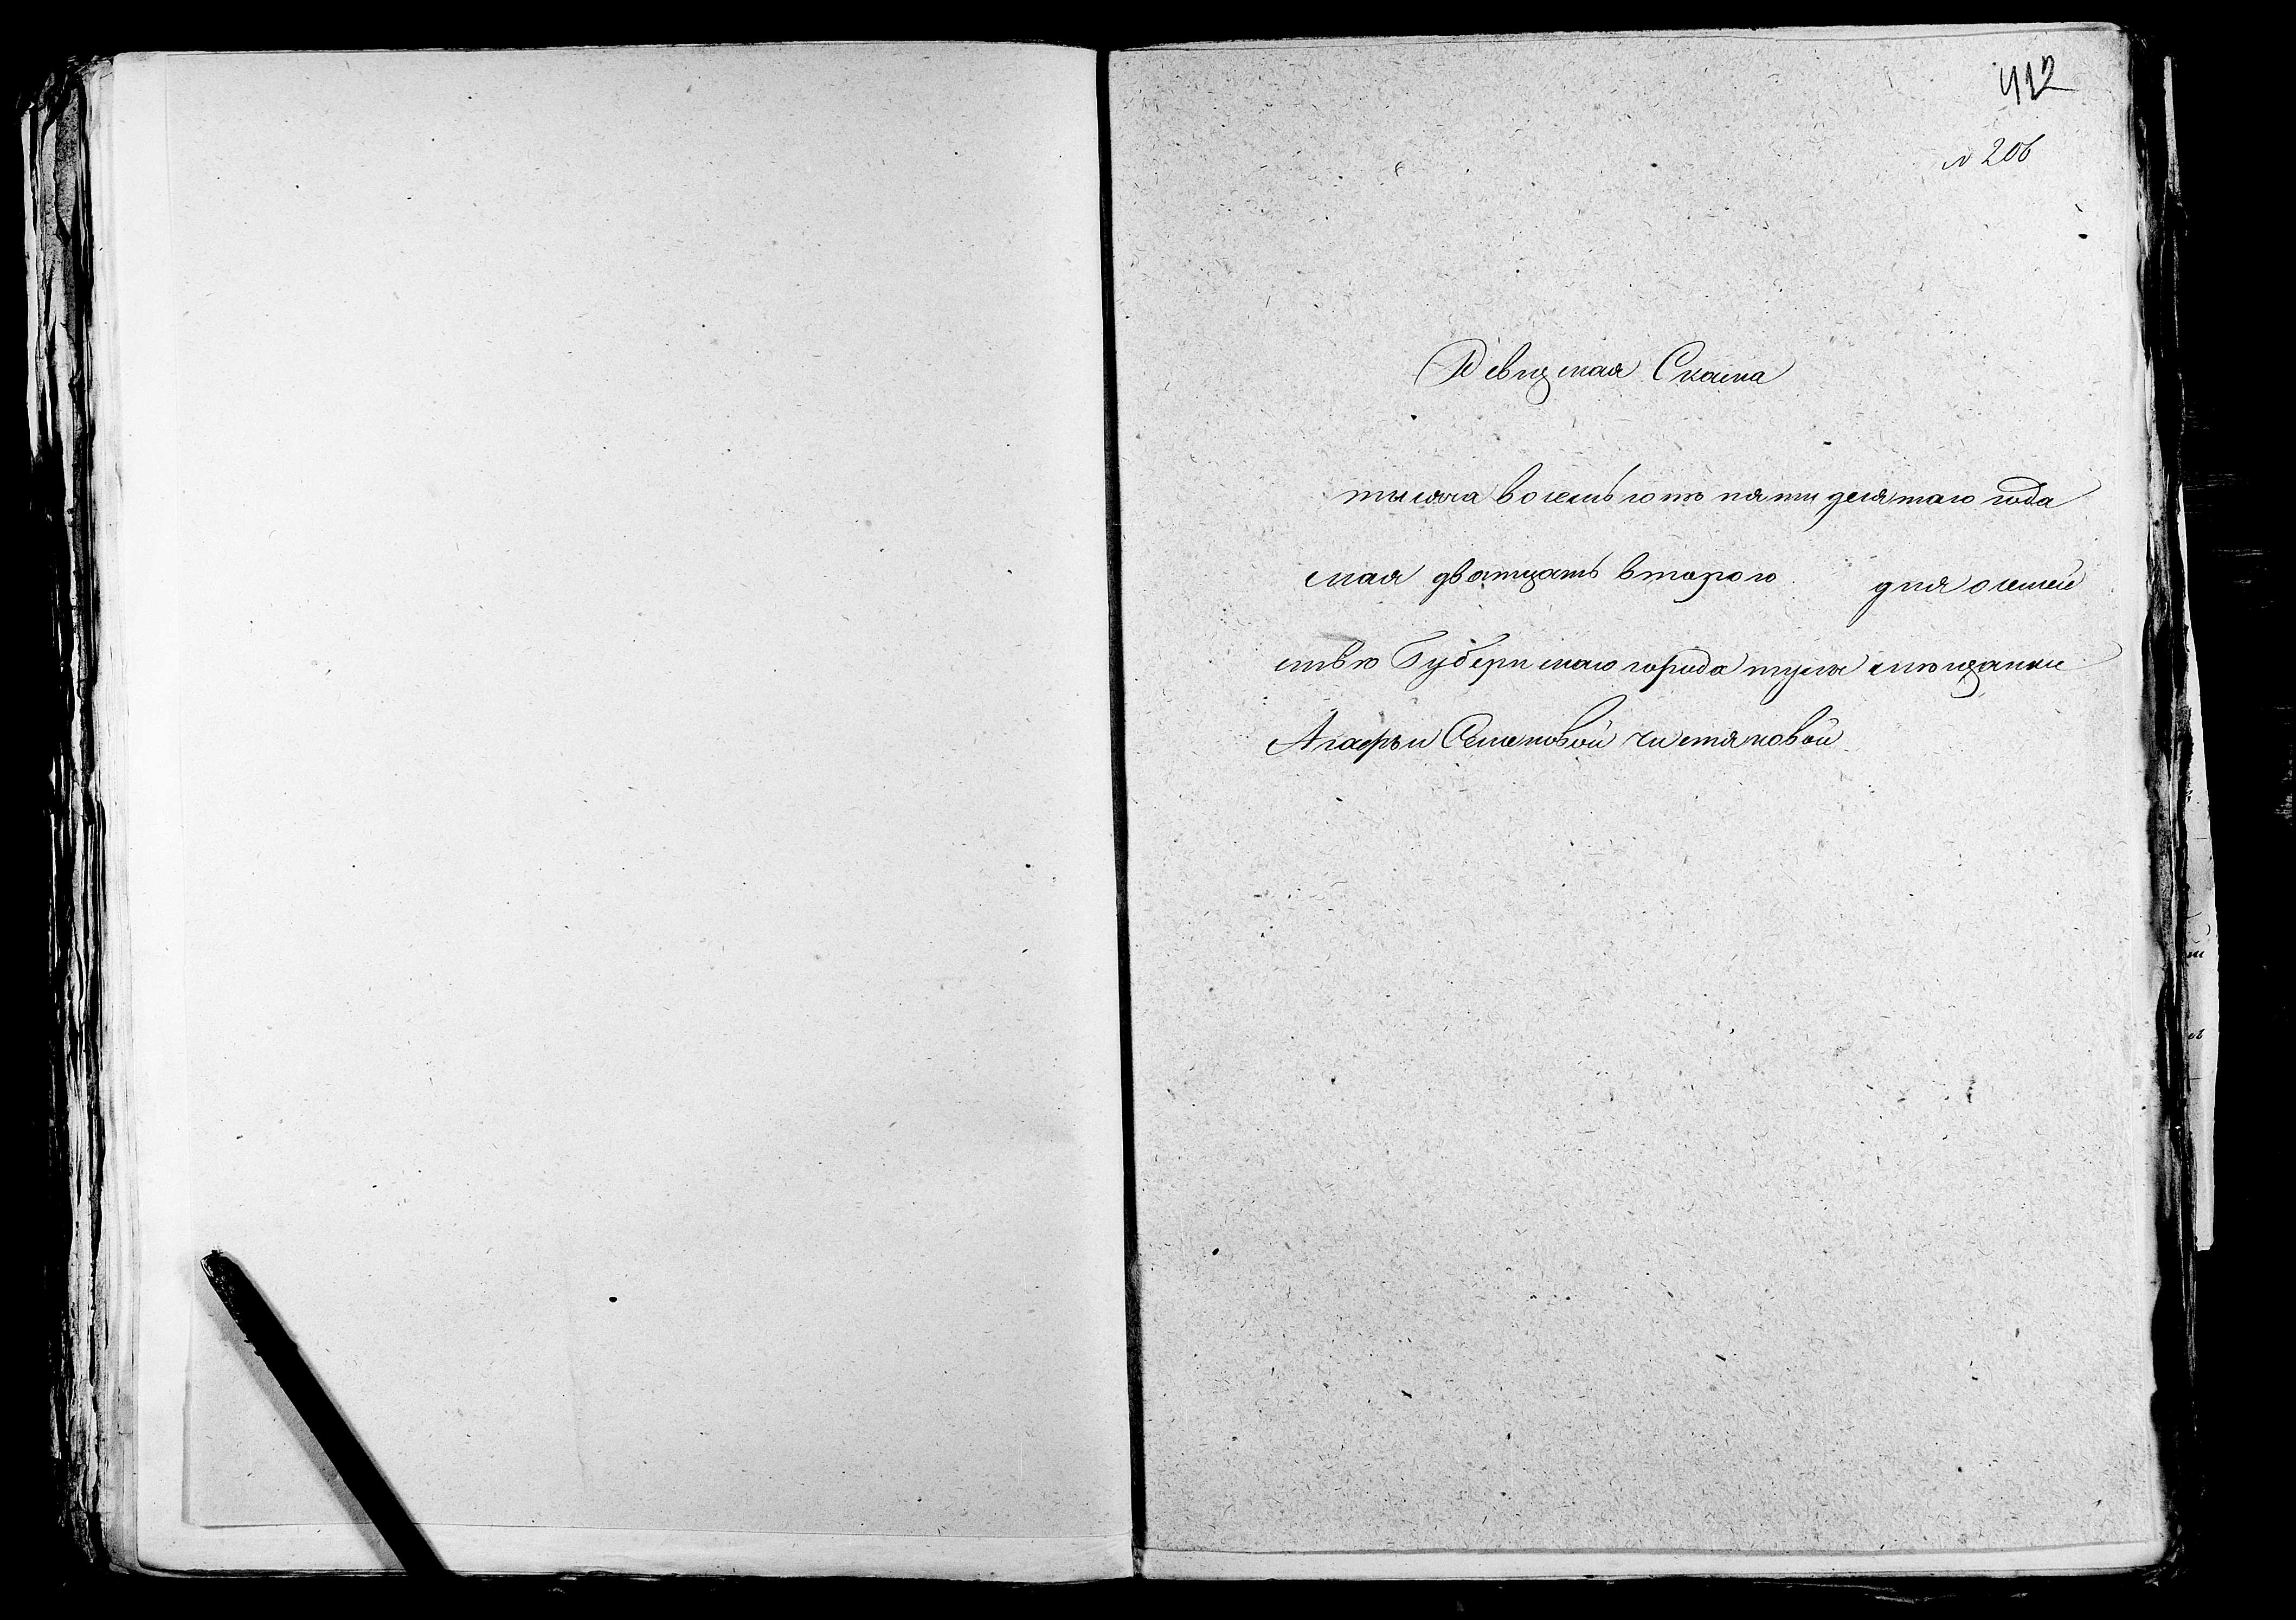 412
№ 206
Ревизская Сказка
тысяча восемь сотъ пяти десятаго года
мая дватцать втораго дня о семей
ствѣ Губернскаго города тулы мѣщанки
Агафьи Семеновой чистяковой